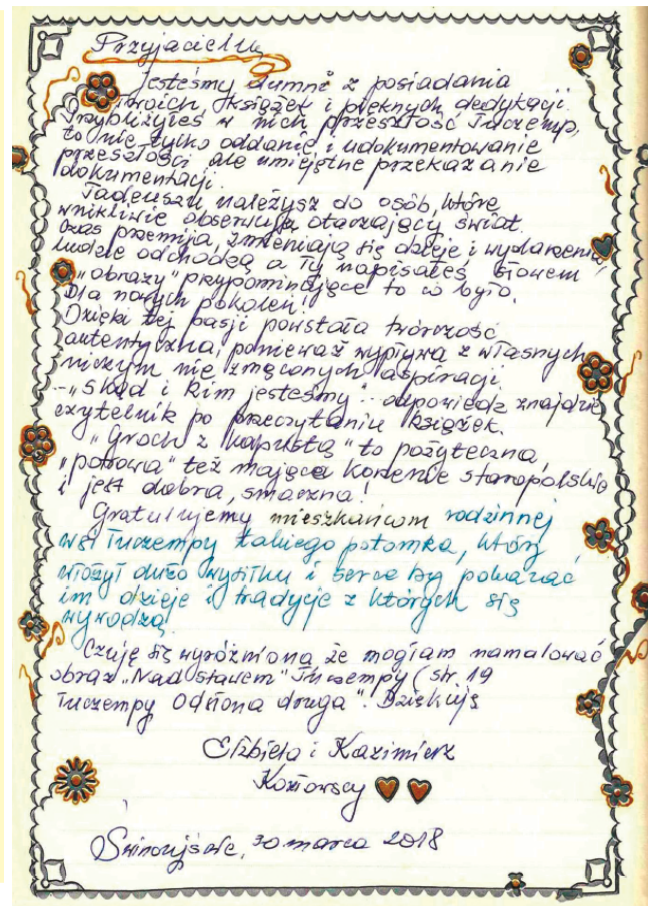 Przyjacielu
Jesteśmy dumni z posiadania
Twoich książek i pięknych dedykacji.
Przybliżyłeś w nich przeszłość Tuczemp,
to nie tylko oddanie i udokumentowanie
przeszłości ale umiejętne przekazanie
dokumentacji.
Tadeuszu należysz do osób, które
wnikliwie obserwują otaczający świat.
Czas przemija, zmieniają się dzieje i wydarzenia,
ludzie odchodzą a Ty napisałeś słowem
"obrazy" przypominające to co było,
Dla nowych pokoleń!
Dzięki tej pasji powstała twórczość
autentyczna, ponieważ wypływa z własnych
niczym nie zmąconych aspiracji.
- "Skąd i kim jesteśmy" - odpowiedz znajdzie
czytelnik po przeczytaniu książek.
"Groch z kapustą" to pożyteczna,
"potrawa" też mająca korzenie staropolskie
i jest dobra, smaczna!
Gratulujemy mieszkańcom rodzinnej
wsi Tuczempy takiego potomka, który
włożył dużo wysiłku i serce by pokazać
im dzieje i tradycje z których się
wywodzą!
Czuję się wyróżniona że mogłam namalować
obraz "Nad stawem" Tuczempy (str. 19
Tuczempy Odsłona druga". Dziękuję
Elżbieta i Kazimierz
Kozłowscy
Świnoujście, 30 marca 2018